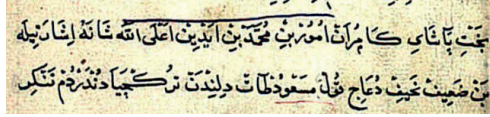 بخت پاشاي كامران امور بن محمد بن ايدين اعلى الله شانه اشارتيله
بن ضعيف نحيف دعاج قول مسعود طات دلندن تركجيا دندردم تنكر